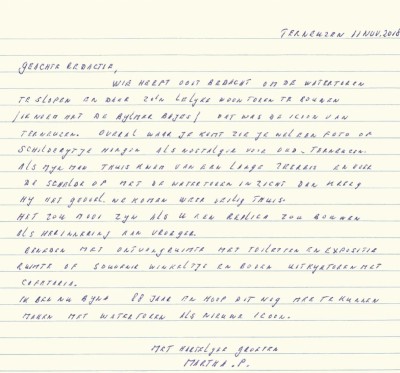 TERNEUZEN 11 NOV. 2018
GEACHTE REDACTIE,
WIE HEEFT OOIT BEDACHT OM DE WATERTOREN
TE SLOPEN EN DAAR ZO'N LELYKE WOONTOREN TE BOUWEN
DAT WAS DE ICON VAN
TERNEUZEN. OVERAL WAAR JE KOMT ZIE JE WEL EEN FOTO OF
SCHILDERYTJE HANGEN ALS NOSTALGIE VOOR OUD-TERNEUZEN.
ALS MYN MAN THUIS KWAM VAN EEN LANGE ZEEREIS EN OVER
DE SCHELDE OP MET DE WATERTOREN IN ZICHT DAN KREEG
HY HET GEVOEL WE KOMEN WEER VEILIG THUIS.
HET ZOU MOOI ZYN ALS U EEN REPLICA ZOU BOUWEN
ALS HERINNERING AAN VROEGER.
BENEDEN MET ONTVANGRUIMTE MET TOILETTEN EN EXPOSITIE
RUIMTE OF SOUVENIR WINKELTJE EN BOVEN UITKYKTOREN MET
CAFETARIA.
IK BEN NU BYNA 88 JAAR EN HOOP DIT NOG MEE TE KUNNEN
MAKEN MET WATERTOREN ALS NIEUWE ICOON.
MET HARTELYKE GROETEN
MARTHA .P.